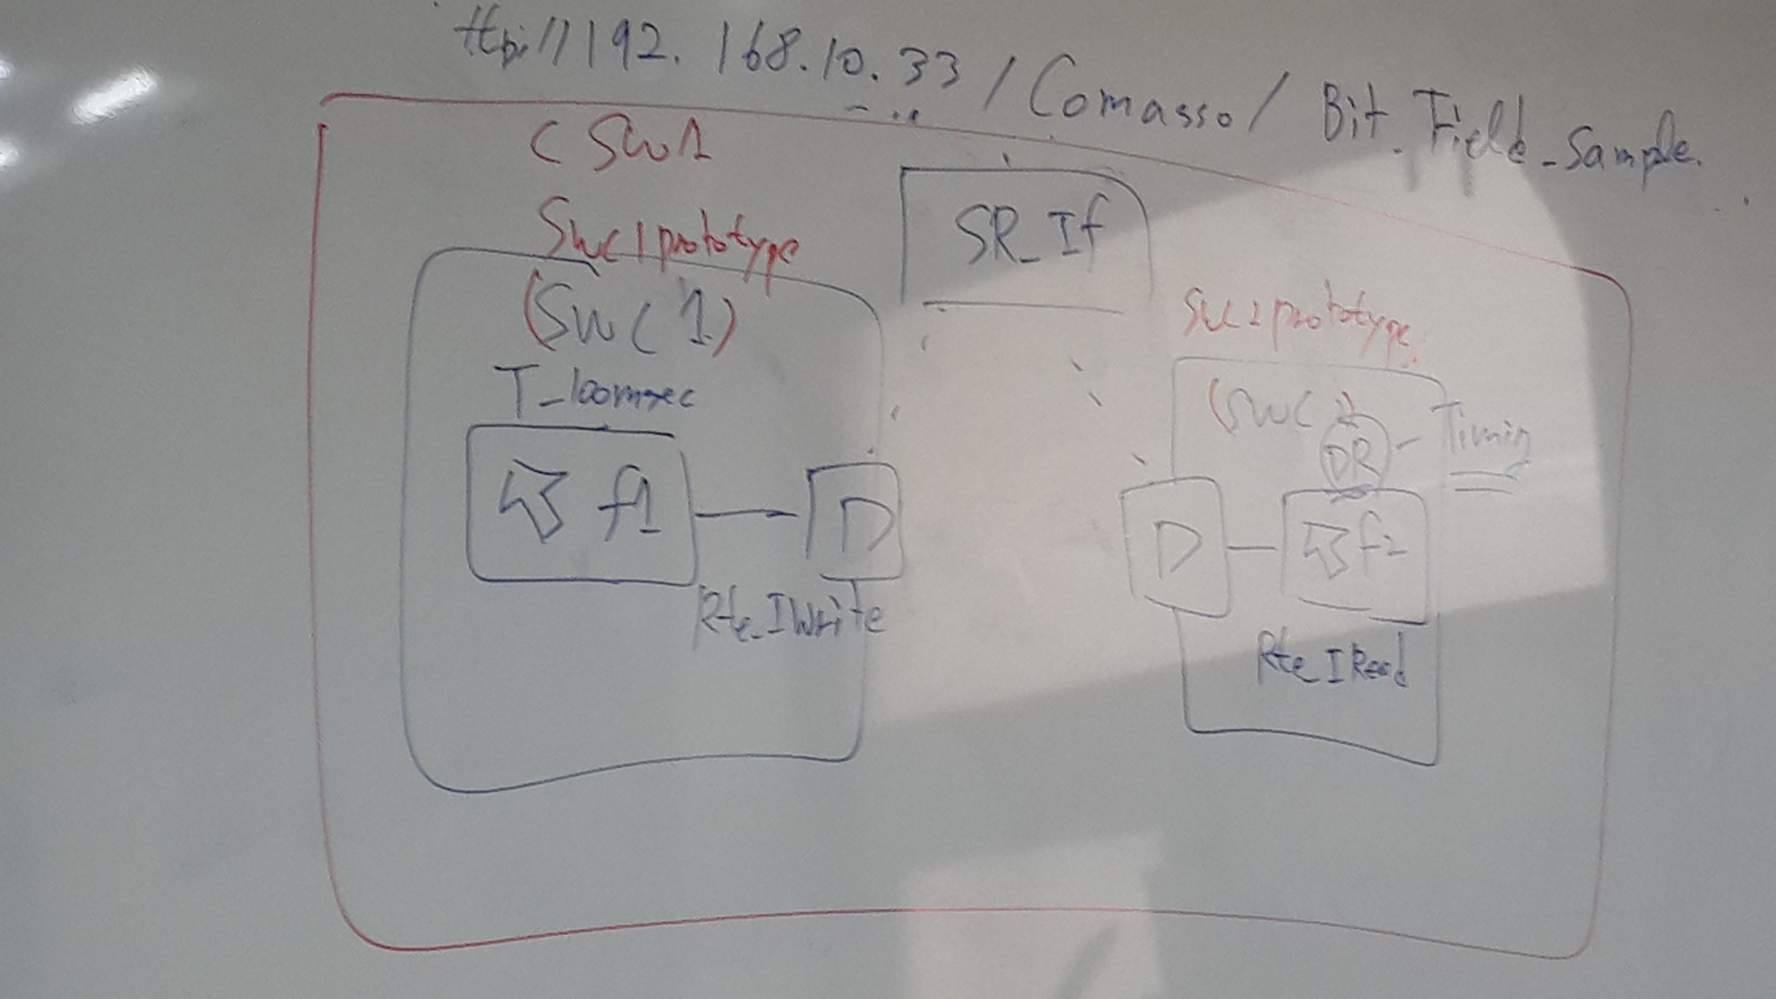 http://192.168.10.33/Comasso/Bit_Field_Sample.
CSW1
SWC1prototype
(SWC1)
T_100msec
f1
D
Rte_IWrite
SR_If
SWC2prototype
(SWC2)
DR
Timing
D
f2
Rte_IRead